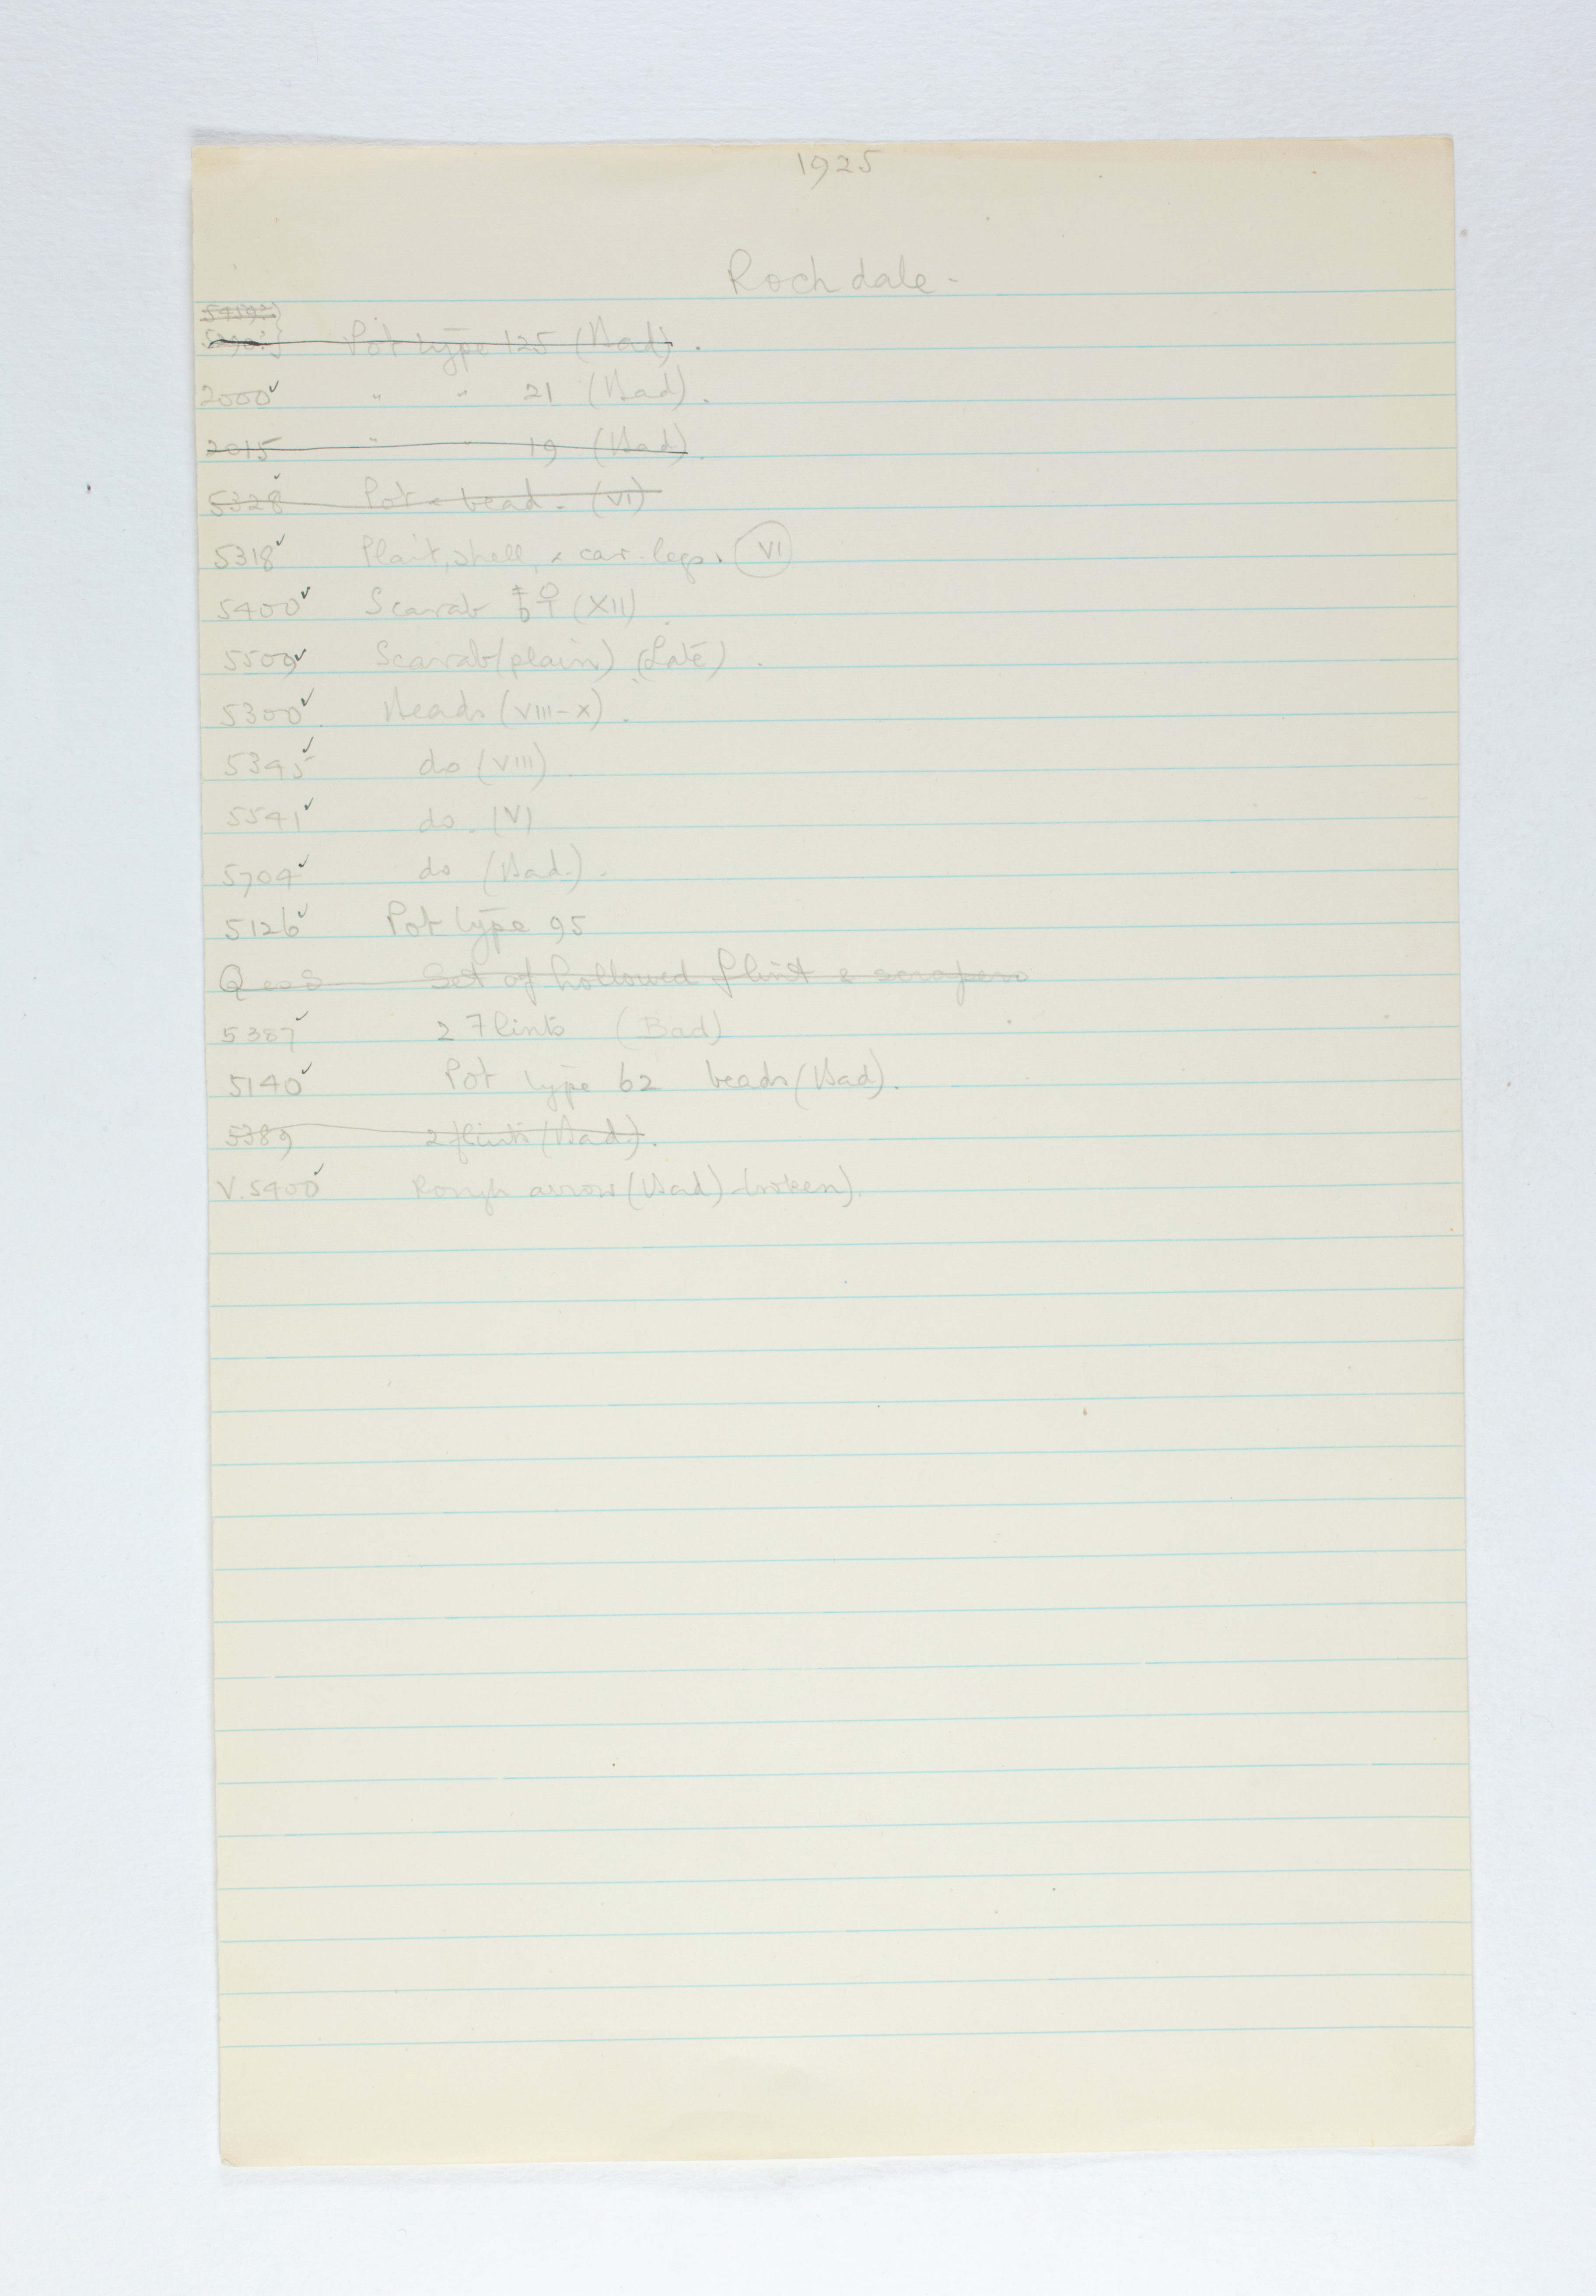 1925
Rochdale -
Pot type 125 (Bad).
2000✓ " " 21 (Bad).
2015 " " 19 (Bad).
5328✓ Pot & bead - (VI)
5318✓ Plait, shell, & car. legs. (VI)
5400✓ Scarab (XII).
5509✓ Scarab (plain) (Late).
5300✓. Beads (VIII-X).
5395✓ do (VIII).
5541✓ do. (V)
5704✓ do (Bad.).
5126✓ Pot type 95
Set of hollowed flint & scrapers
5387✓ 2 Flints (Bad)
5140✓ Pot type 62 beads (Bad).
5389 2 flints (Bad.).
V. 5400✓ Rough arrow (Bad) broken).